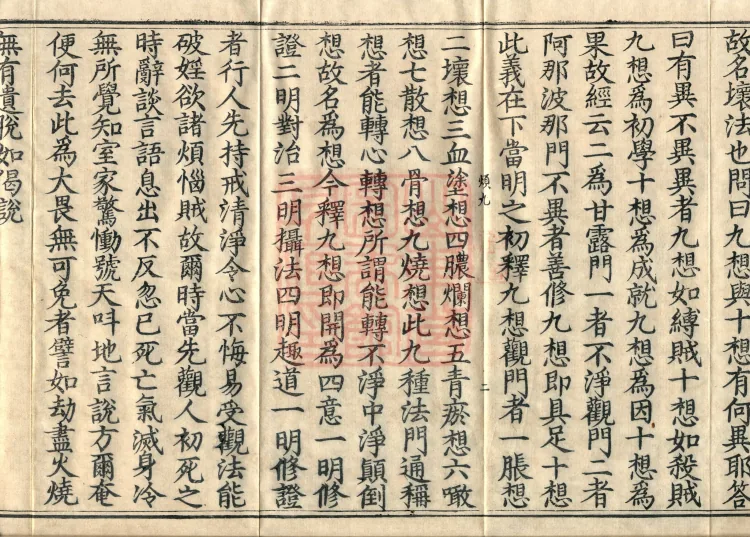 故名壞法也問曰九想與十想有何異耶答
曰有異不異異者九想如縛賊十想如殺賊
九想爲初學十想爲成就九想爲因十想爲
果故經云二爲甘露門一者不淨觀門二者
阿那波那門不異者善修九想即具足十想
此義在下當明之初釋九想觀門者一脹想
煩九
二
二壞想三血塗想四膿爛想五青瘀想六噉
想七散想八骨想九燒想此九種法門通稱
想者能轉心轉想所謂能轉不淨中淨顛倒
想故名爲想今釋九想即開爲四意一明修
證二明對治三明攝法四明趣道一明修證
者行人先持戒清淨令心不悔易受觀法能
破婬欲諸煩惱賊故爾時當先觀人初死之
時辭談言語息出不反忽已死亡氣滅身冷
無所覺知室家驚慟號天叫地言說方爾奄
便何去此為大畏無可免者譬如劫盡火燒
無有遺脫如偈說